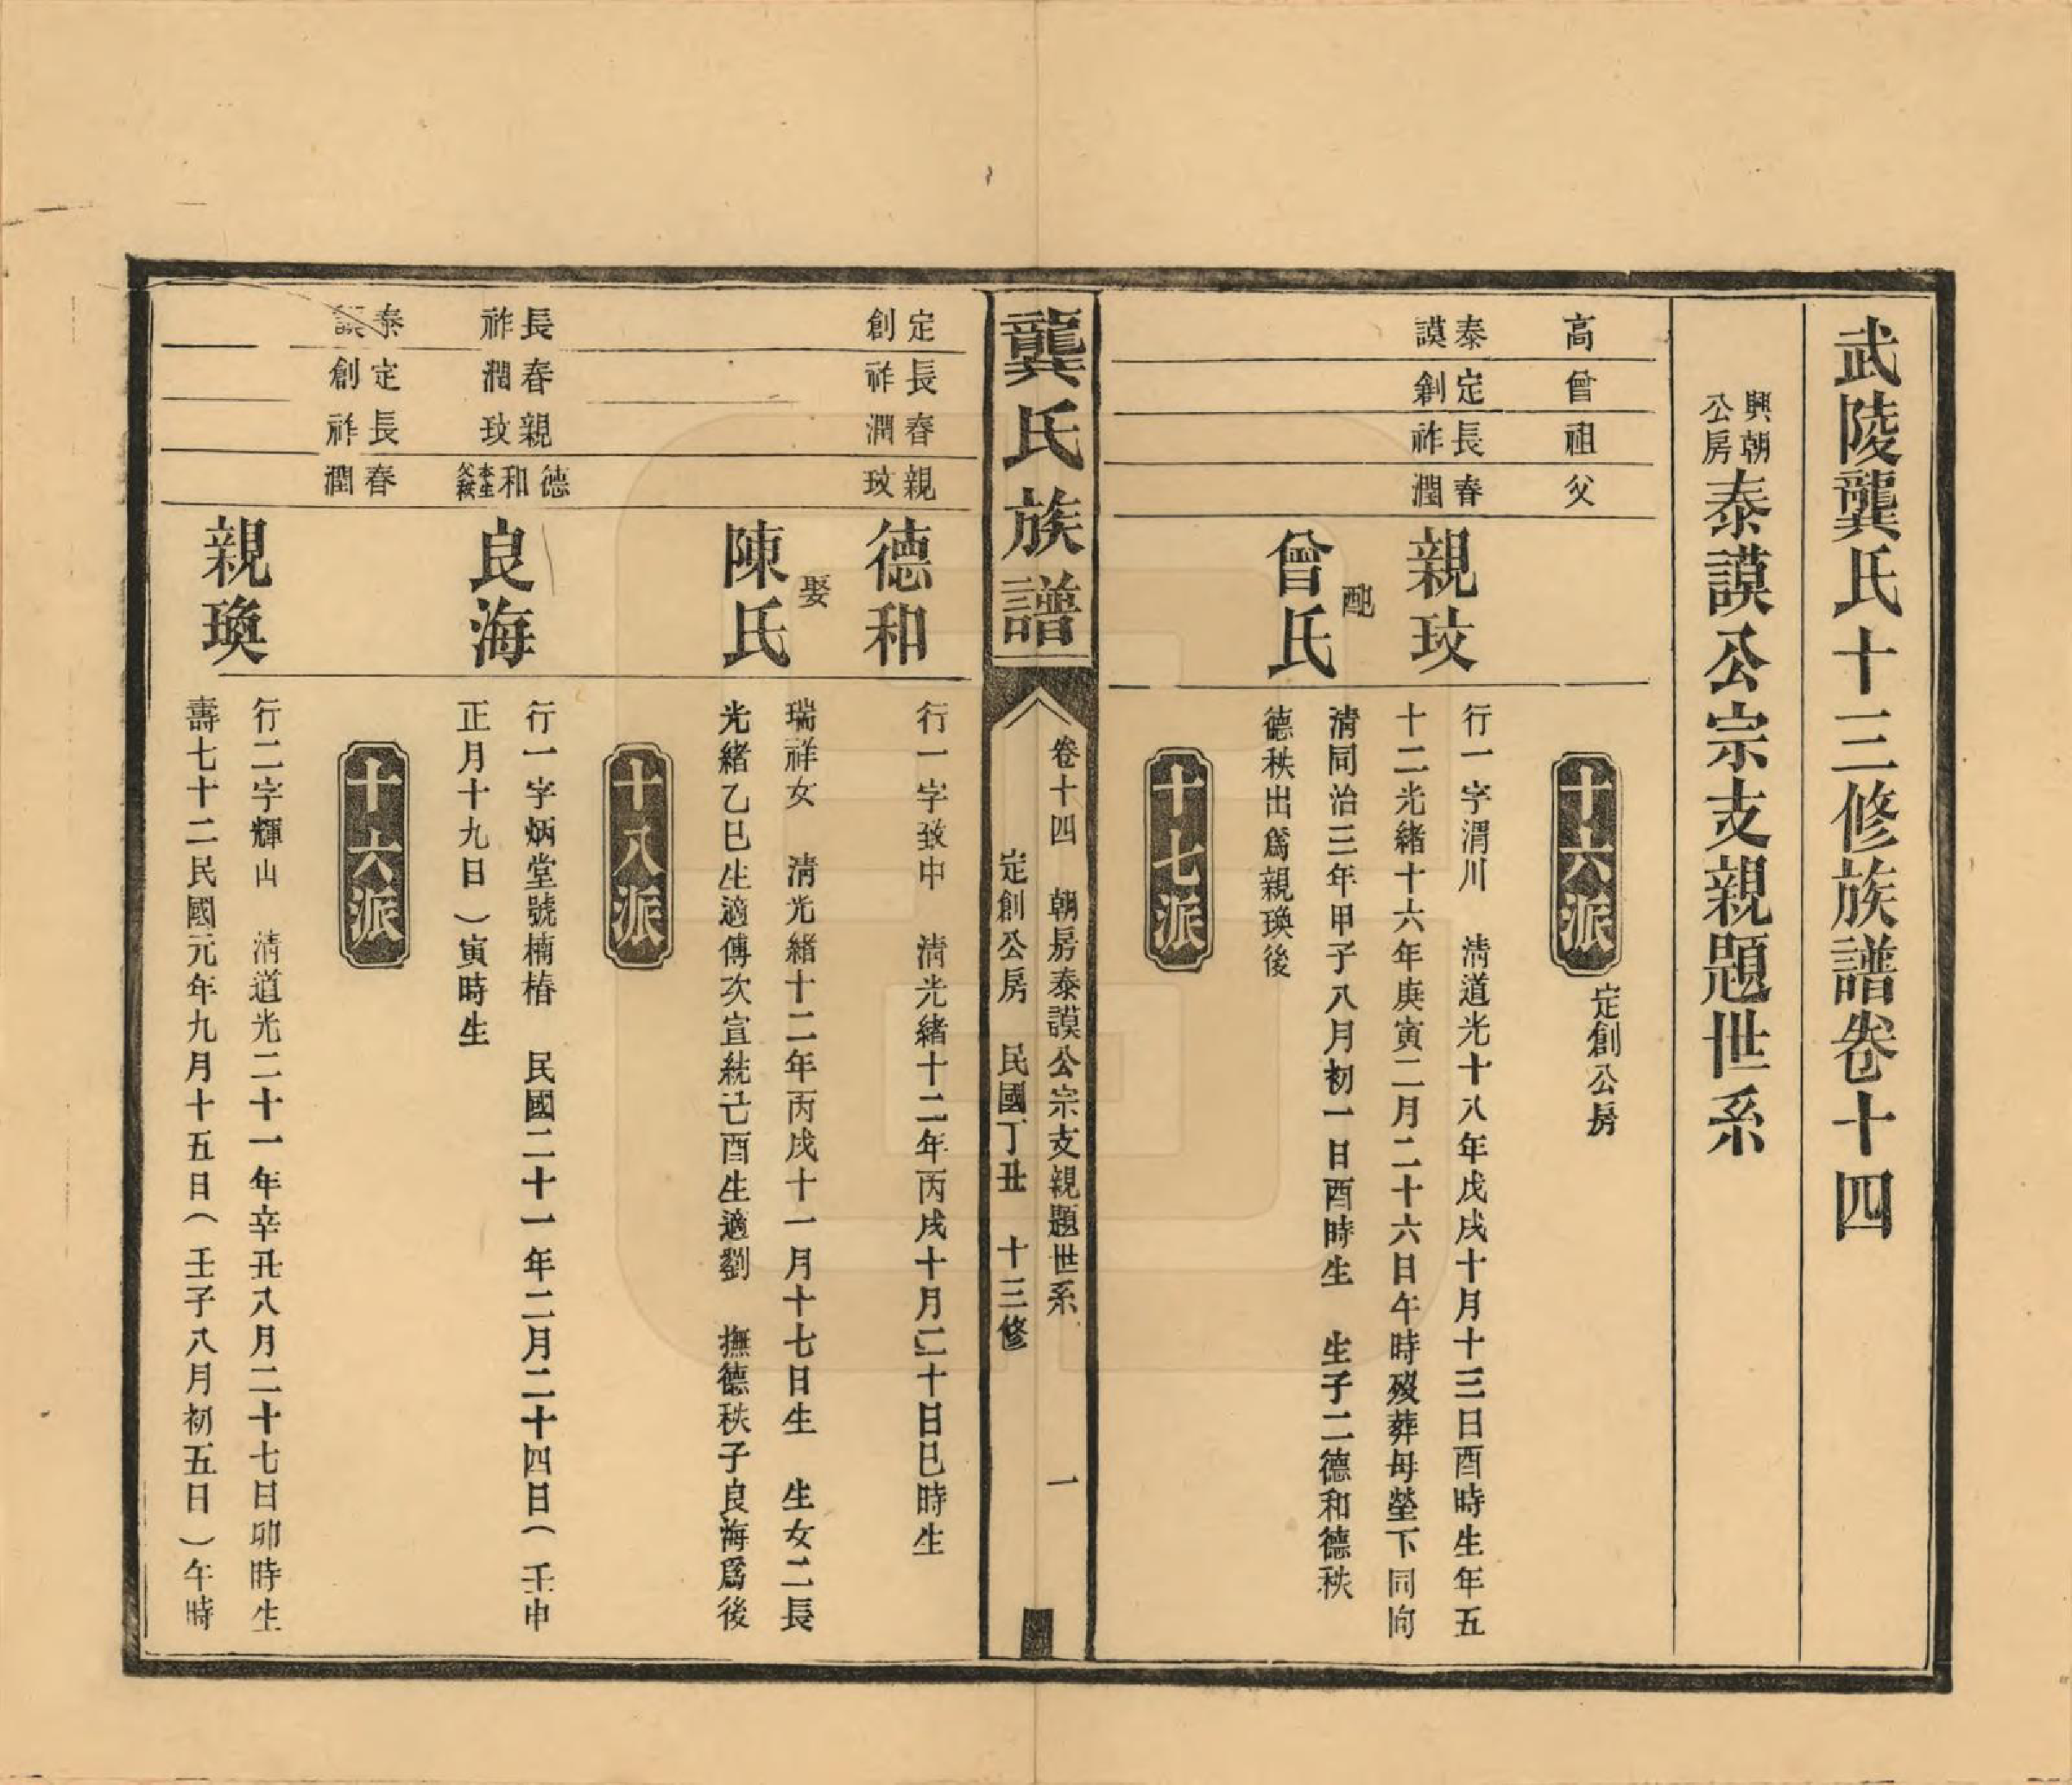 武陵龔氏十三修族譜卷十四
興朝公房泰謨公宗支親題世系
高
曾
祖
父
十六派
定創公房
泰謨
定創
長祚
春潤
親玟
行一字渭川 清道光十八年戊戌十月十三日酉時生年五
十二光緒十六年庚寅二月二十六日午時歿葬母塋下同向
配
曾氏
清同治三年甲子八月初一日酉時生 生子二德和德秩
德秩出爲親瑍後
十七派
龔氏族譜
卷十四 朝房泰謨公宗支親題世系 一
定創公房 民國丁丑 十三修
定創
長祚
春潤
親玟
德和
行一字致中 清光緒十二年丙戌十月二十日巳時生
娶
陳氏
瑞祥女 清光緒十二年丙戌十一月十七日生 生女二長
光緒乙巳生適傅次宣統己酉生適劉 撫德秩子良海爲後
十八派
長祚
春潤
親玟
德和本生父秩
良海
行一字炳堂號楠椿 民國二十一年二月二十四日(壬申
正月十九日)寅時生
十六派
泰謨
定創
長祚
春潤
親瑍
行二字輝山 清道光二十一年辛丑八月二十七日卯時生
壽七十二民國元年九月十五日(壬子八月初五日)午時